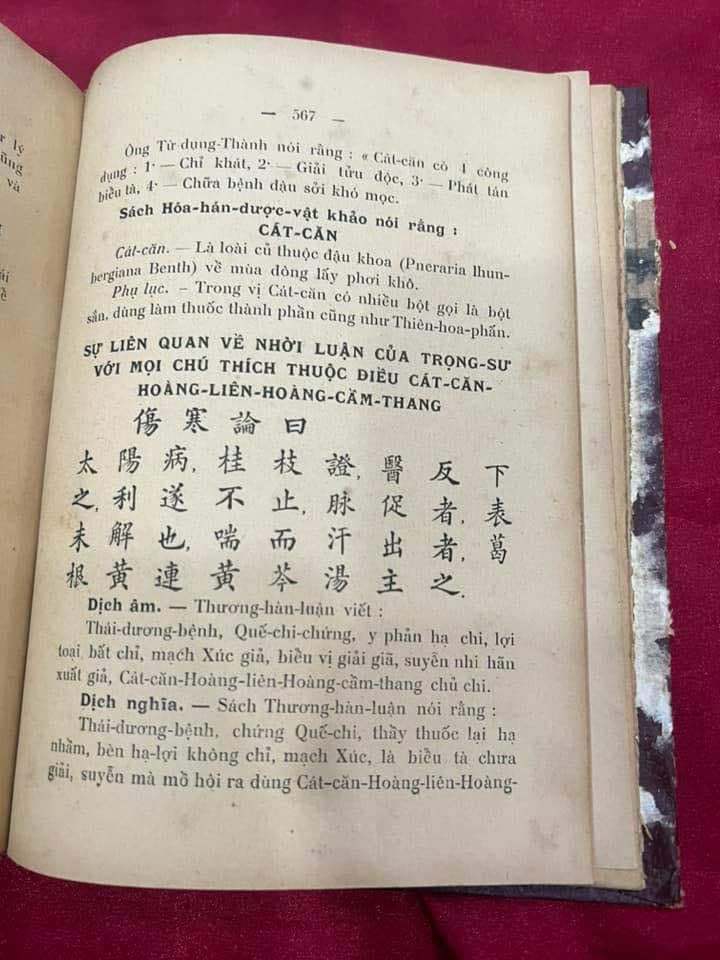 ừ lý
cũng
và
— 567 —
Ông Từ-dụng-Thành nói rằng : « Cát-căn có 4 công
dụng : 1· — Chỉ khát, 2· — Giải tửu độc, 3· — Phát tán
biểu tà, 4· — Chữa bệnh đậu sởi khó mọc.
Sách Hóa-hán-dược-vật khảo nói rằng :
CÁT-CĂN
Cát-căn. — Là loài củ thuộc đậu khoa (Pneraria lhun-
bergiana Benth) về mùa đông lấy phơi khô.
Phụ lục. – Trong vị Cát-căn có nhiều bột gọi là bột
sắn, dùng làm thuốc thành phần cũng như Thiên-hoa-phấn.
SỰ LIÊN QUAN VỀ NHỜI LUẬN CỦA TRỌNG-SƯ
VỚI MỌI CHÚ THÍCH THUỘC ĐIỀU CÁT-CĂN-
HOÀNG-LIÊN-HOÀNG-CẦM-THANG
傷寒論曰
太陽病, 桂枝證, 醫反下
之, 利遂不止, 脉促者, 表
未解也, 喘而汗出者, 葛
根黃連黃芩湯主之.
Dịch âm. — Thương-hàn-luận viết :
Thái-dương-bệnh, Quế-chi-chứng, y phản hạ chi, lợi
toại bất chỉ, mạch Xúc giả, biểu vị giải giã, suyễn nhi hãn
xuất giả, Cát-căn-Hoàng-liên-Hoàng-cầm-thang chủ chi.
Dịch nghĩa. — Sách Thương-hàn-luận nói rằng :
Thái-dương-bệnh, chứng Quế-chi, thầy thuốc lại hạ
nhầm, bèn hạ-lợi không chỉ, mạch Xúc, là biểu tà chưa
giải, suyễn mà mồ hôi ra dùng Cát-căn-Hoàng-liên-Hoàng-